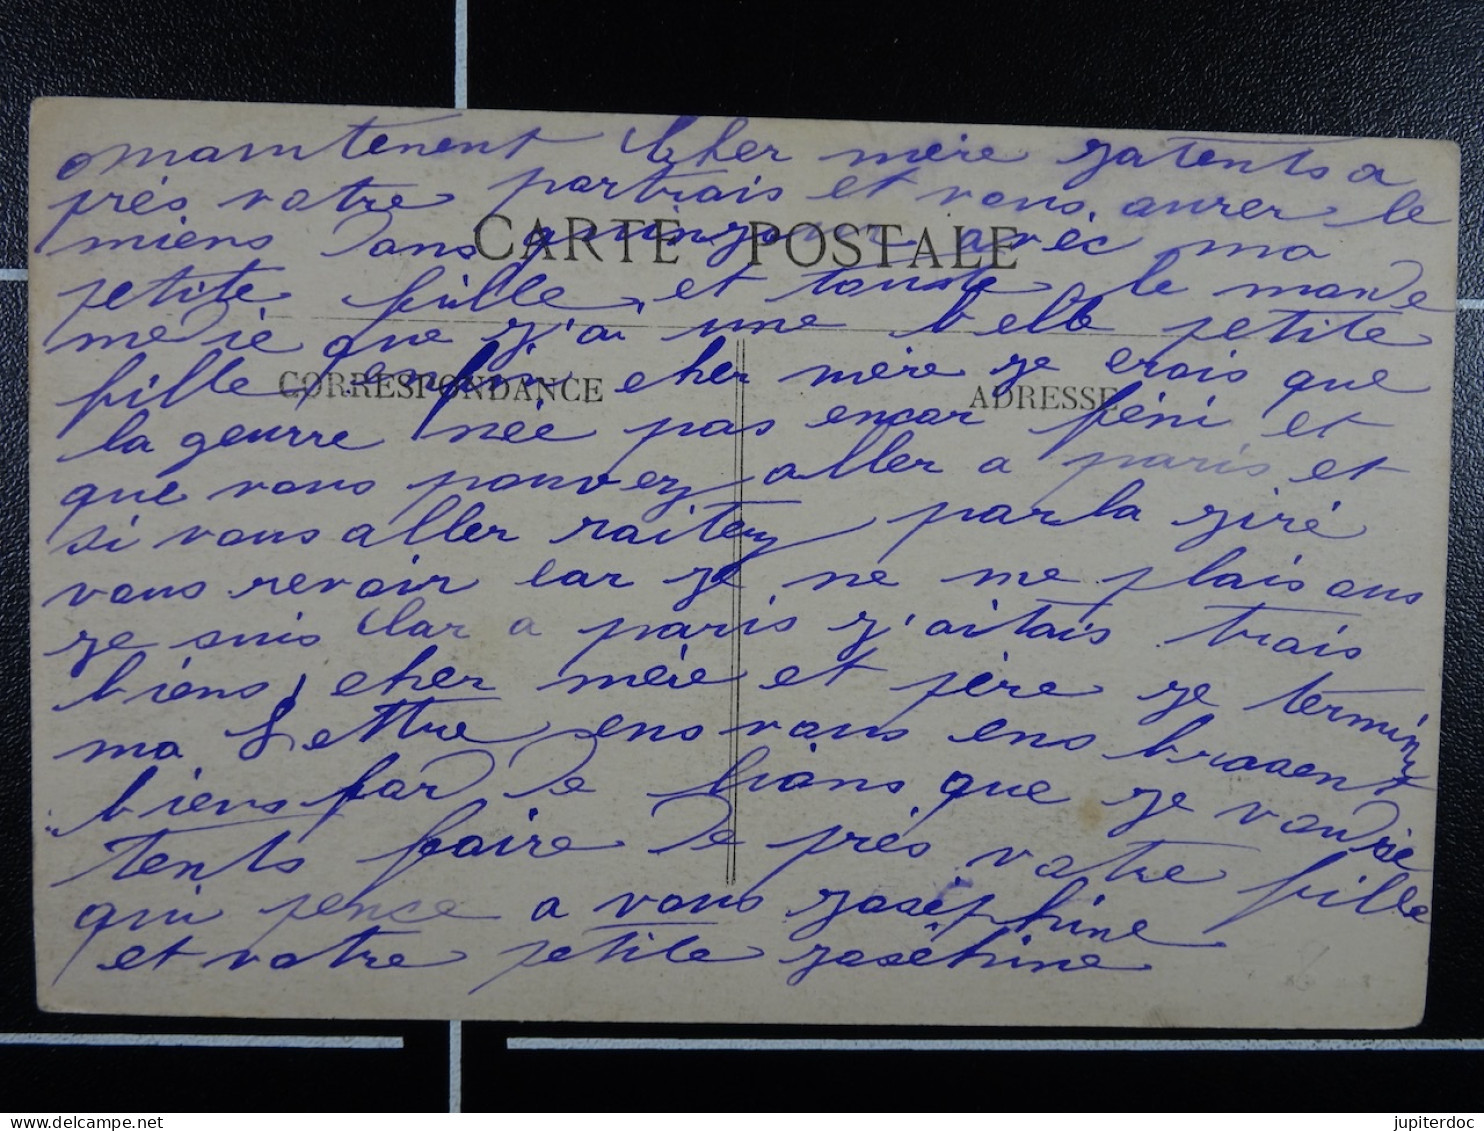 maintenent Cher mère jatents a
près votre portrais et vous aurer le
miens dans avec ma
CARTE POSTALE
petite fille et tousle le monde
me die que j'ai une belle petite
fille enfin cher mère je crois que
CORRESPONDANCE ADRESSE
la geurre née pas encor féni et
que vous pouvez aller a paris et
si vous aller raitez parla jiré
vous revoir car je ne me plais ous
je suis Car a paris j'aitais trais
biens cher mére et père je termine
ma Lettre ens vous ens brasent
biens fard de lians que je voudrie
tents faire de près votre fille
qui pence a vous joséphine
et votre petite joséhine
jupiterdoc
delcampe.net